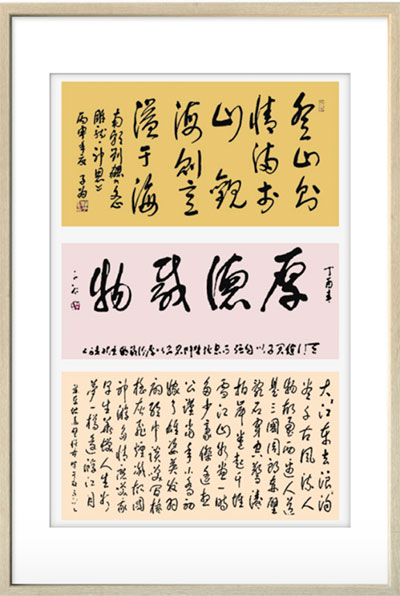 登山则
情满于
山观
海则意
溢于海
南朝刘勰文心
雕龙神思
丙申年夏
丁酉春
厚德载物
大江东去浪淘
尽千古风流人
物故垒西边人道
是三国周郎赤壁
乱石穿空惊涛
拍岸卷起千堆
雪江山如画一时
多少豪杰遥想
公瑾当年小乔初
嫁了雄姿英发羽
扇纶巾谈笑间樯
橹灰飞烟灭故国
神游多情应笑我
早生华发人生如
梦一樽还酹江月